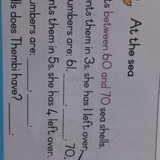 At the sea
between 60 and 70 sea shells.
nts them in 3s, she has 1 left over.
umbers are: 61 ___ 70.
nts them in 5s, she has 4 left over.
umbers are: ___
lls does Thembi have? ___